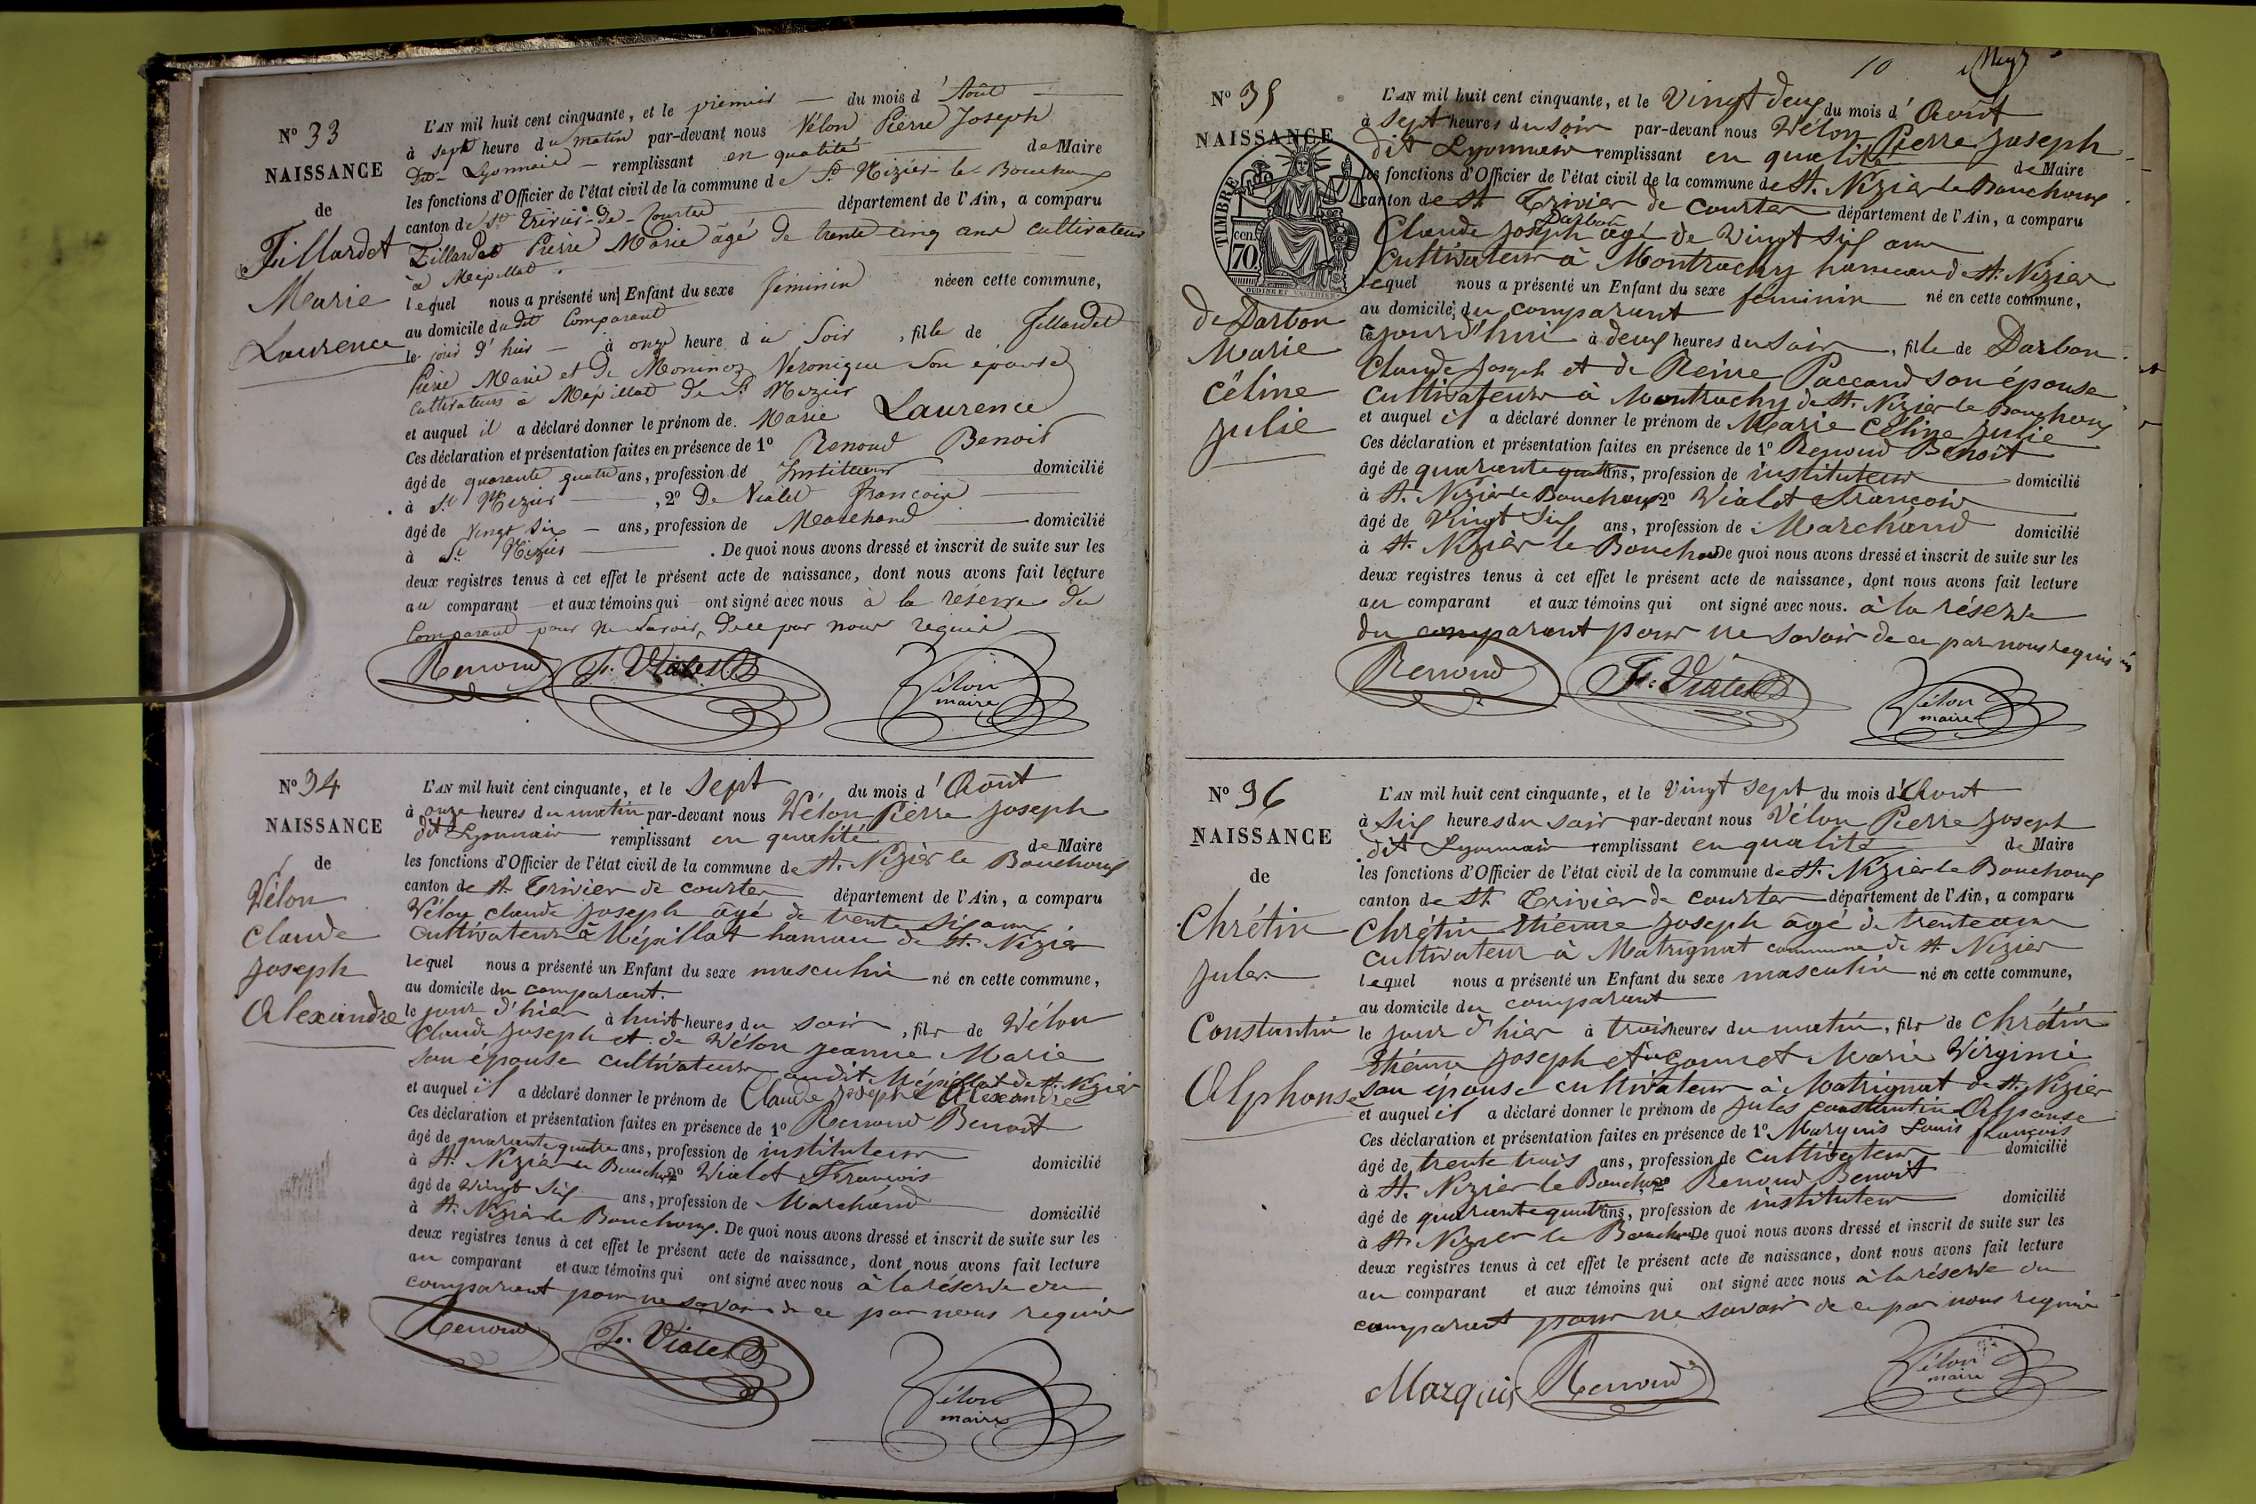 N° 33
NAISSANCE
de
Tillardet
Marie
Laurence
L'AN mil huit cent cinquante, et le premier — du mois d'Août
à sept heure du matin par-devant nous Vélon Pierre Joseph
dit Lyonnais — remplissant en qualité de Maire
les fonctions d'Officier de l'état civil de la commune de St Nizier le Bouchoux
canton de St Trivier-de-Courtes département de l'Ain, a comparu
Tillardet Pierre Marie âgé de trente cinq ans cultivateur
à Mépillat
lequel nous a présenté un Enfant du sexe féminin née en cette commune,
au domicile dudit Comparant
le jour d'hier — à onze heure du soir, fille de Tillardet
Pierre Marie et de Véronique son épouse
cultivateurs à Mépillat de St Nizier
et auquel il a déclaré donner le prénom de Marie Laurence
Ces déclaration et présentation faites en présence de 1° Renoud Benoit
âgé de quarante quatre ans, profession de Instituteur domicilié
à St Nizier, 2° De Vialet François
âgé de vingt six — ans, profession de Marchand domicilié
à St Nizier. De quoi nous avons dressé et inscrit de suite sur les
deux registres tenus à cet effet le présent acte de naissance, dont nous avons fait lecture
au comparant et aux témoins qui ont signé avec nous à la reserve du
Comparant pour ne savoir, de ce par nous requis
Renoud F. Vialet Vélon
maire
N° 34
NAISSANCE
de
Vélon
Claude
Joseph
Alexandre
L'AN mil huit cent cinquante, et le sept du mois d'Août
à onze heures du matin par-devant nous Vélon Pierre Joseph
dit Lyonnais remplissant en qualité de Maire
les fonctions d'Officier de l'état civil de la commune de St. Nizier le Bouchoux
canton de St Trivier de courtes département de l'Ain, a comparu
Vélon claude Joseph âgé de trente six ans
cultivateur à Mépillat hamau de St. Nizier
lequel nous a présenté un Enfant du sexe masculin né en cette commune,
au domicile du comparant.
le jour d'hier à huit heures du soir, fils de Vélon
Claude Joseph et de Vélon Jeanne Marie
son épouse cultivateurs audit Mépillat de St. Nizier
et auquel il a déclaré donner le prénom de Claude Joseph Alexandre
Ces déclaration et présentation faites en présence de 1° Renoud Benoit
âgé de quarante quatre ans, profession de instituteur
à St. Nizier le Bouchoux 2° Vialet François domicilié
âgé de vingt six ans, profession de Marchand
à St. Nizier le Bouchoux. De quoi nous avons dressé et inscrit de suite sur les domicilié
deux registres tenus à cet effet le présent acte de naissance, dont nous avons fait lecture
au comparant et aux témoins qui ont signé avec nous à la réserve du
comparant pour ne savoir de ce par nous requis
Renoud F. Vialet
Vélon
maire
10
N° 35
NAISSANCE
TIMBRE
cen. 70.
de Darbon
Marie
Céline
Julie
L'AN mil huit cent cinquante, et le vingt deux du mois d'Août
à sept heures du soir par-devant nous Vélon Pierre Joseph
dit Lyonnais remplissant en qualité de Maire
les fonctions d'Officier de l'état civil de la commune de St. Nizier le Bouchoux
canton de St Trivier de courtes département de l'Ain, a comparu
Darbon
Claude Joseph âgé de vingt six ans
cultivateur à Montrachy hameau de St. Nizier
lequel nous a présenté un Enfant du sexe féminin né en cette commune,
au domicile, du comparant
cejourd'hui à deux heures du soir, fille de Darbon
Claude Joseph et de Reine Paccaud son épouse
cultivateurs à Montrachy de St. Nizier le Bouchoux
et auquel il a déclaré donner le prénom de Marie Céline Julie
Ces déclaration et présentation faites en présence de 1° Renoud Benoit
âgé de quarante quatre ans, profession de instituteur domicilié
à St. Nizier le Bouchoux 2° Vialet François
âgé de vingt six ans, profession de Marchand domicilié
à St. Nizier le Bouchoux De quoi nous avons dressé et inscrit de suite sur les
deux registres tenus à cet effet le présent acte de naissance, dont nous avons fait lecture
au comparant et aux témoins qui ont signé avec nous. à la réserve
du comparant pour ne savoir de ce par nous requis
Renoud F. Vialet Vélon
maire
N° 36
NAISSANCE
de
Chrétin
Jules
Constantin
Alphonse
L'AN mil huit cent cinquante, et le vingt sept du mois d'Août
à six heures du soir par-devant nous Vélon Pierre Joseph
dit Lyonnais remplissant en qualité de Maire
les fonctions d'Officier de l'état civil de la commune de St. Nizier le Bouchoux
canton de St Trivier de courtes département de l'Ain, a comparu
Chrétin étienne Joseph âgé de trente ans
cultivateur à Matrignat commune de St Nizier
lequel nous a présenté un Enfant du sexe masculin né en cette commune,
au domicile du comparant
le jour d'hier à trois heures du matin, fils de Chrétin
étienne Joseph et Marie Virginie
son épouse cultivateur à Matrignat de St. Nizier
et auquel il a déclaré donner le prénom de Jules constantin Alponse
Ces déclaration et présentation faites en présence de 1° Marquis Louis françois
âgé de trente trois ans, profession de cultivateur domicilié
à St. Nizier le Bouchoux 2° Renoud Benoit
âgé de quarante quatre ans, profession de instituteur domicilié
à St. Nizier le Bouchoux De quoi nous avons dressé et inscrit de suite sur les
deux registres tenus à cet effet le présent acte de naissance, dont nous avons fait lecture
au comparant et aux témoins qui ont signé avec nous à la réserve du
comparant pour ne savoir de ce par nous requis
Marquis Renoud Vélon
maire